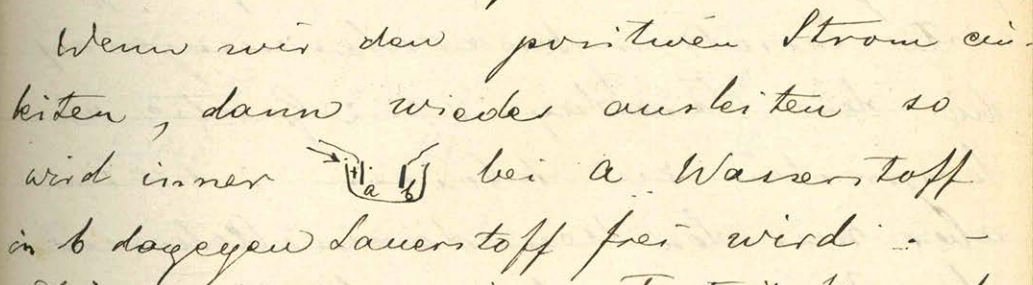 Wenn wir den positiven Strom ein-
leiten, dann wieder ausleiten so
wird immer + a b bei a Wasserstoff
in b dagegen Sauerstoff frei wird. -